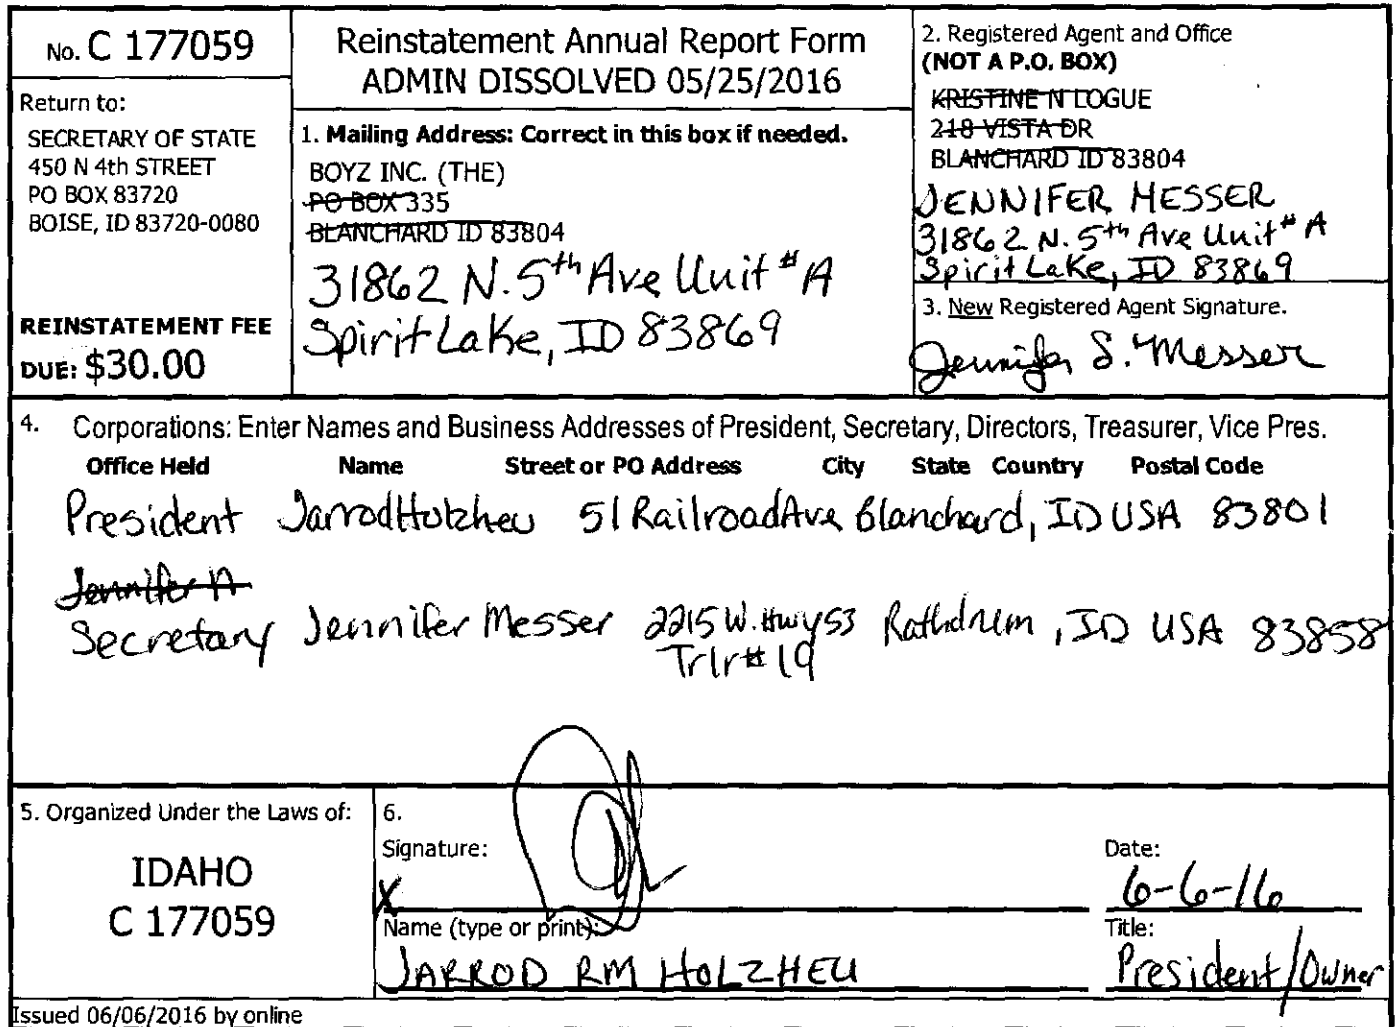 No. C 177059
Return to:
SECRETARY OF STATE
450 N 4th STREET
PO BOX 83720
BOISE, ID 83720-0080
REINSTATEMENT FEE
DUE: $30.00
Reinstatement Annual Report Form
ADMIN DISSOLVED 05/25/2016
1. Mailing Address: Correct in this box if needed.
BOYZ INC. (THE)
PO BOX 335
BLANCHARD ID 83804
31862 N. 5th Ave Unit # A
Spirit Lake, ID 83869
2. Registered Agent and Office
(NOT A P.O. BOX)
KRISTINE N LOGUE
218 VISTA DR
BLANCHARD ID 83804
JENNIFER MESSER
31862 N. 5th Ave Unit # A
Spirit Lake, ID 83869
3. New Registered Agent Signature.
Jennifer S. Messer
4. Corporations: Enter Names and Business Addresses of President, Secretary, Directors, Treasurer, Vice Pres.
Office Held Name Street or PO Address City State Country Postal Code
President Jarrod Holzheu 51 Railroad Ave Blanchard, ID USA 83801
Jennifer
Secretary Jennifer Messer 2215 W. Hwy 53 Rathdrum, ID USA 83858
Trlr # 19
5. Organized Under the Laws of:
IDAHO
C 177059
6.
Signature:
X
Name (type or print):
JARROD RM HOLZHEU
Date:
6-6-16
Title:
President/Owner
Issued 06/06/2016 by online